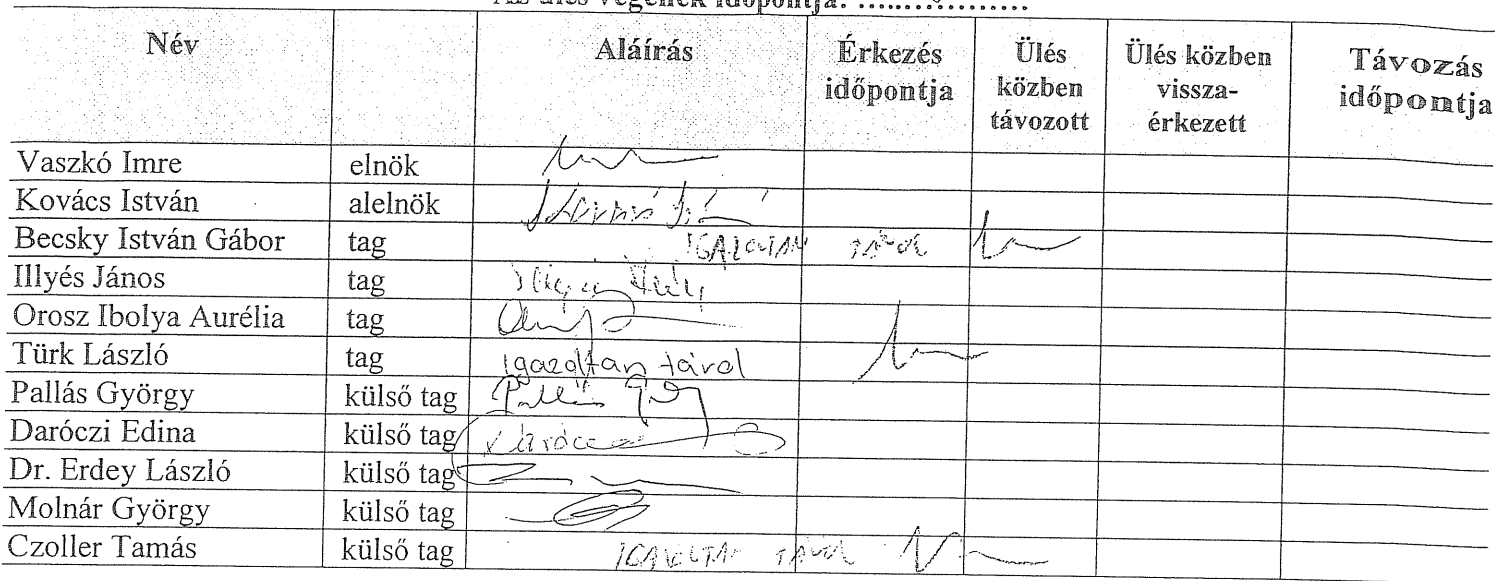 Az ülés végének időpontja: ..................
Név Aláírás Érkezés időpontja Ülés közben távozott Ülés közben vissza-érkezett Távozás időpontja
Vaszkó Imre elnök
Kovács István alelnök
Becsky István Gábor tag IGAZOLTAN TÁVOL
Illyés János tag
Orosz Ibolya Aurélia tag
Türk László tag Igazoltan távol
Pallás György külső tag Pallás Gy
Daróczi Edina külső tag
Dr. Erdey László külső tag
Molnár György külső tag
Czoller Tamás külső tag IGAZOLTAN TÁVOL